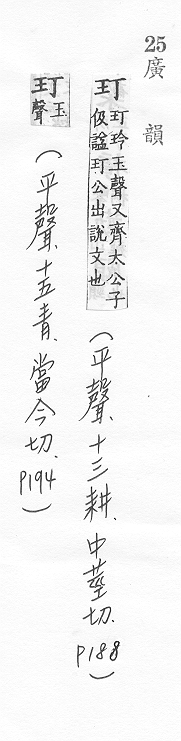 25廣韻
玎 玎玲玉聲又齊太公子
伋諡玎公出說文也
(平聲、十三耕、中莖切. P188)
玎 玉
聲
(平聲、十五青、當今切. P194)